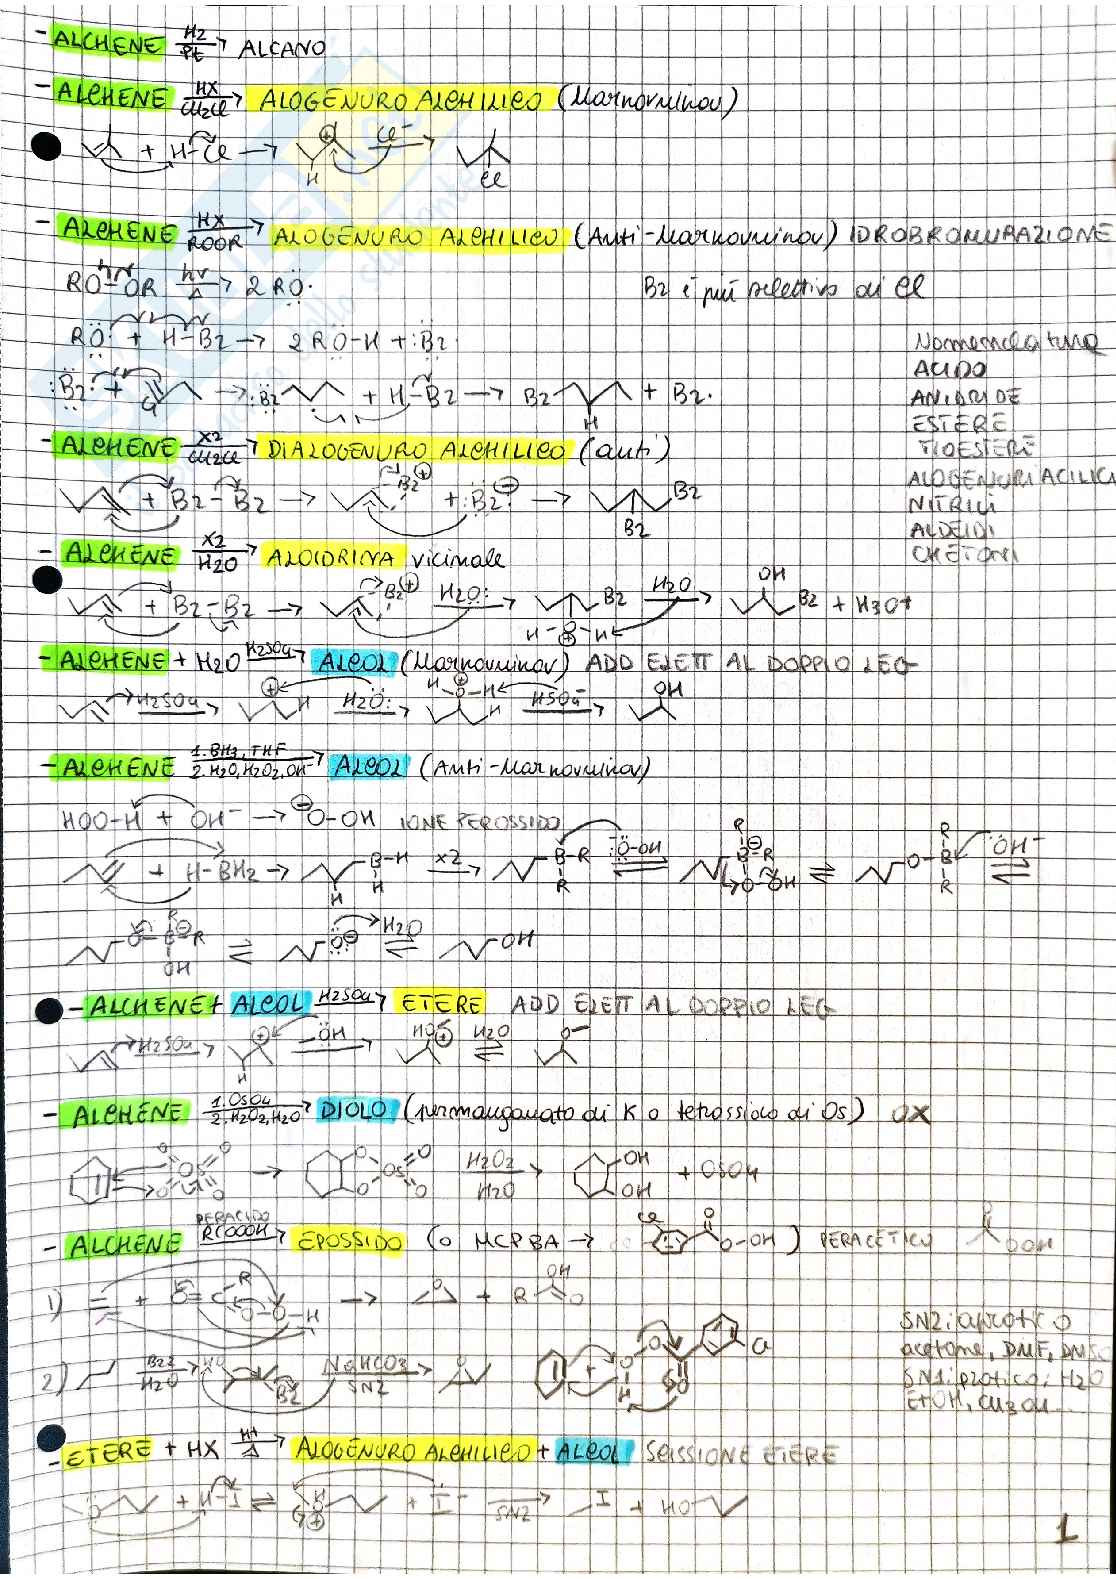 - ALCHENE H2 Pt → ALCANO
- ALCHENE HX CH2Cl → ALOGENURO ALCHILICO (Markovnikov)
+ H-Cl → Cl⁻ →
H Cl
- ALCHENE HX ROOR → ALOGENURO ALCHILICO (Anti-Markovnikov) IDROBROMURAZIONE
RO-OR hν Δ → 2 RO· Br è più selettivo di Cl
RO· + H-Br → 2 RO-H + :Br·
:Br· + → :Br + H-Br → Br H + Br·
Nomenclatura
ACIDO
ANIDRIDE
ESTERE
TIOESTERE
ALOGENURI ACILICI
NITRILI
ALDEIDI
CHETONI
- ALCHENE X2 CH2Cl → DIALOGENURO ALCHILICO (anti)
+ Br-Br → Br⊕ + :Br:⊖ → Br Br
- ALCHENE X2 H2O → ALOIDRINA vicinale
+ Br-Br → Br⊕ H2O: → Br H-O-H ⊕ H2O → OH Br + H3O+
- ALCHENE + H2O H2SO4 → ALCOL (Markovnikov) ADD ELETT AL DOPPIO LEG
H2SO4 → ⊕ H H2O: → H-O-H ⊕ H HSO4⁻ → OH
- ALCHENE 1. BH3, THF 2. H2O, H2O2, OH⁻ → ALCOL (Anti-Markovnikov)
HOO-H + OH⁻ → ⊖O-OH IONE PEROSSIDO
+ H-BH2 → H B-H H x2 → B-R R :O-OH ⇌ R B⊖ R O-OH ⇌ O-B R R :OH⁻ ⇌
O-B⊖ R R OH ⇌ O⊖ H2O ⇌ OH
- ALCHENE + ALCOL H2SO4 → ETERE ADD ELETT AL DOPPIO LEG
H2SO4 → ⊕ H -OH → HO⊕ H2O ⇌ O-
- ALCHENE 1. OsO4 2. H2O2, H2O → DIOLO (permanganato di K o tetrossido di Os) OX
O O Os O O → O O Os O O H2O2 H2O → OH OH + OsO4
- ALCHENE PERACIDO RCOOOH → EPOSSIDO (o MCPBA → Cl O O-OH) PERACETICO O OOH
1) = + O=C R O-O-H → O + R OH O
2) Br2 H2O → HO Br NaHCO3 SN2 → O + O H O O Cl
SN2: aprotico
acetone, DMF, DMSO
SN1: protico: H2O
EtOH, CH3OH
- ETERE + HX H+ Δ → ALOGENURO ALCHILICO + ALCOL SCISSIONE ETERE
O + H-I ⇌ H O ⊕ + I⁻ SN2 → I + HO
1